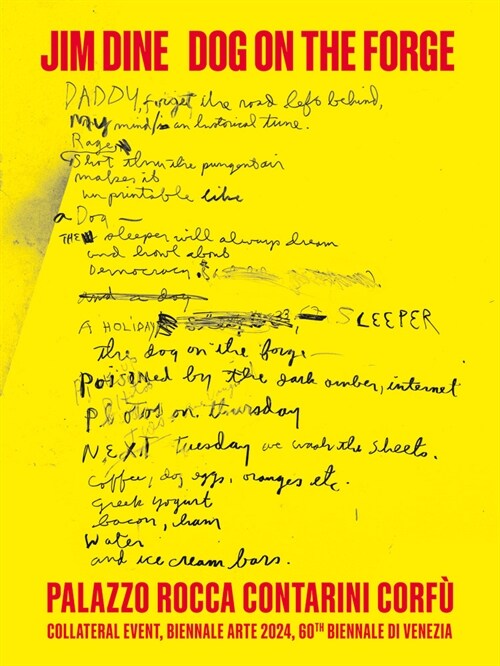 JIM DINE DOG ON THE FORGE
DADDY, forget the road left behind,
My mind/is an historical tune.
Rage
Shot thru the pungent air
makes it
unprintable like
a Dog —
THE sleeper will always dream
and howl about
Democracy.
and a dog
A HOLIDAY, SLEEPER
the dog on the forge —
Poisoned by the dark amber, internet
Photos on thursday
NEXT tuesday we wash the sheets.
Coffee, dog eggs, oranges etc.
Greek yogurt
bacon, ham
Water
and ice cream bars.
PALAZZO ROCCA CONTARINI CORFÙ
COLLATERAL EVENT, BIENNALE ARTE 2024, 60TH BIENNALE DI VENEZIA